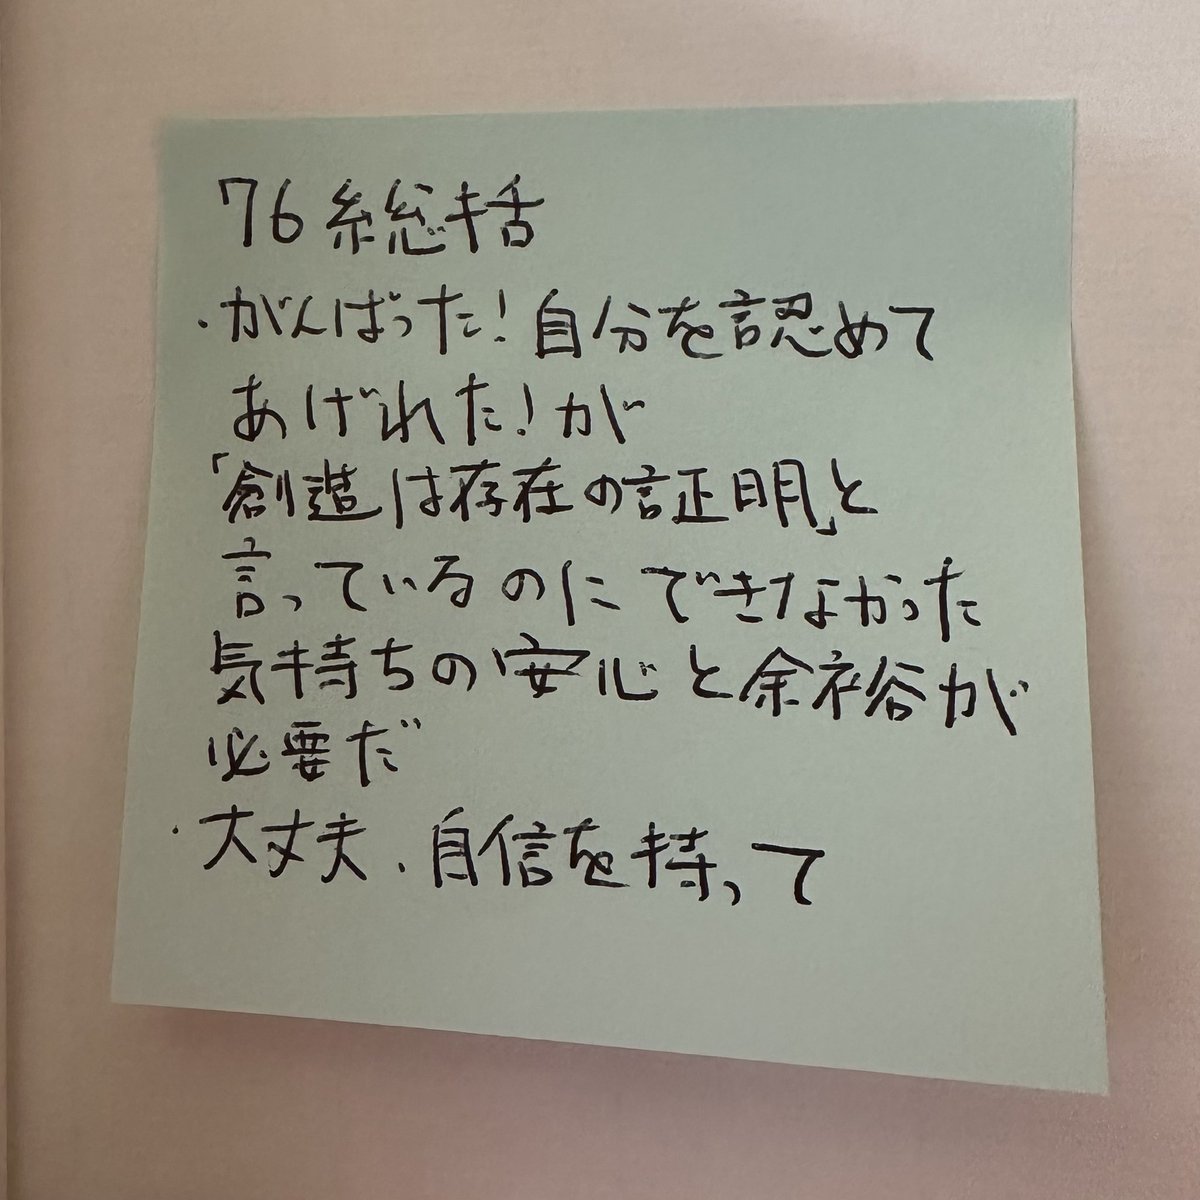 76系総括
・がんばった！自分を認めて
あげれた！が
「創造は存在の証明」と
言っているのにできなかった
気持ちの安心と余裕が
必要だ
・大丈夫、自信を持って